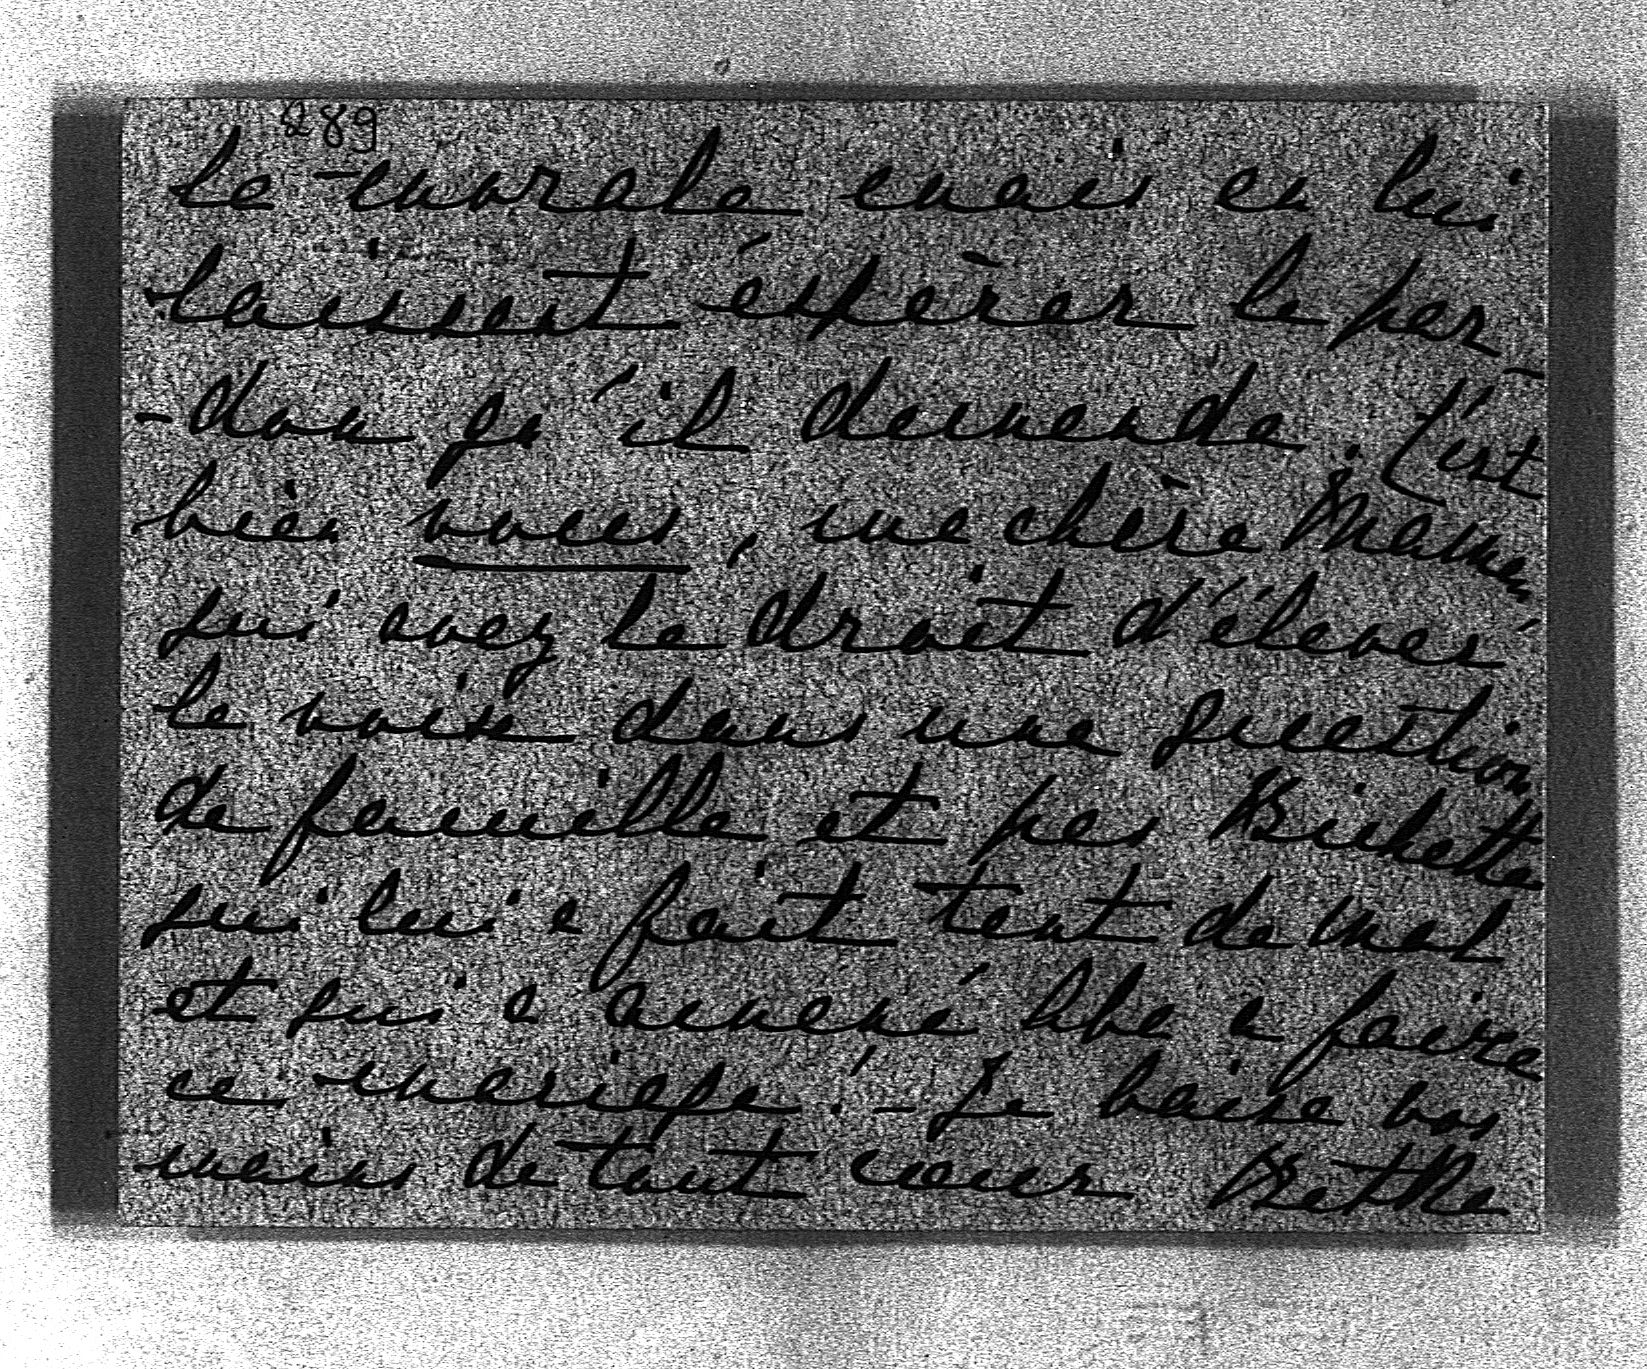 289
la morale mais en lui
laissant éspèrer le par-
-don qu'il demande. C'est
bien vous, ma chère Maman
qui avez le droit d'élever
la voix dans une question
de famille et pas
qui lui a fait tant de mal
et qui a amené a faire
ce mariage! - Je baise vos
mains de tout cœur